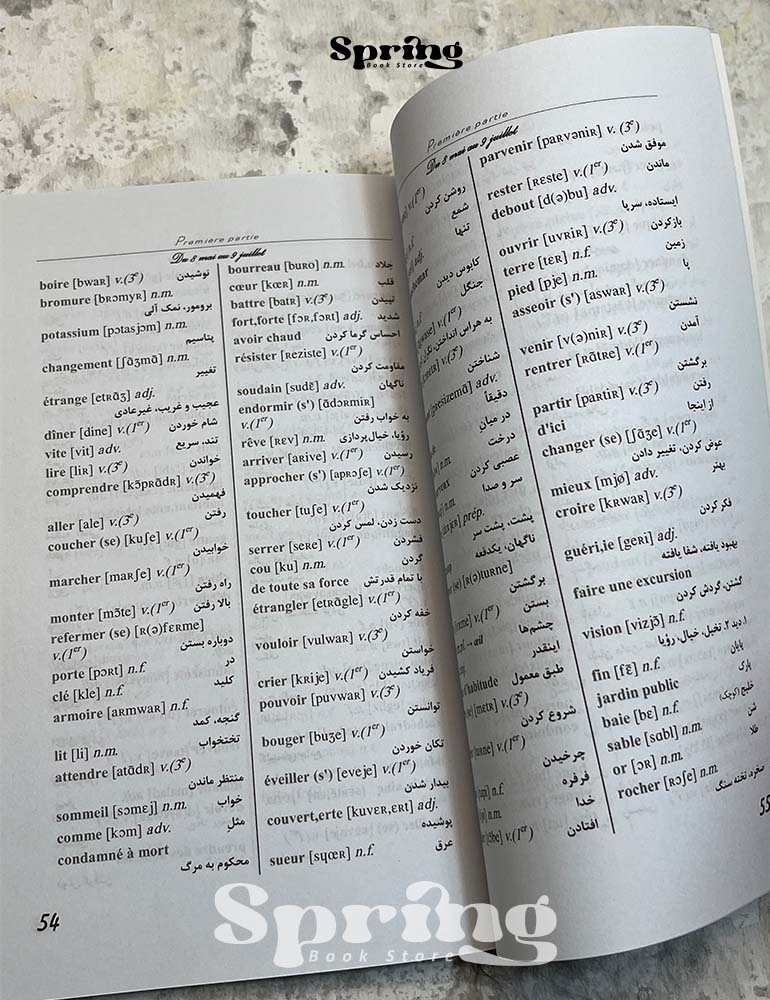 Spring
Book Store
Première partie
Du 8 mai au 9 juillet
boire [bwaʀ] v.(3e) نوشیدن
bromure [bʀɔmyʀ] n.m.
برومور، نمک آلی
potassium [pɔtasjɔm] n.m.
پتاسیم
changement [ʃɑ̃ʒmɑ̃] n.m.
تغییر
étrange [etʀɑ̃ʒ] adj.
عجیب و غریب، غیرعادی
dîner [dine] v.(1er) شام خوردن
vite [vit] adv. تند، سریع
lire [liʀ] v.(3e) خواندن
comprendre [kɔ̃pʀɑ̃dʀ] v.(3e)
فهمیدن
aller [ale] v.(3e) رفتن
coucher (se) [kuʃe] v.(1er)
خوابیدن
marcher [maʀʃe] v.(1er)
راه رفتن
monter [mɔ̃te] v.(1er) بالا رفتن
refermer (se) [ʀ(ə)fɛʀme]
v.(1er) دوباره بستن
porte [pɔʀt] n.f. در
clé [kle] n.f. کلید
armoire [aʀmwaʀ] n.f.
گنجه، کمد
lit [li] n.m. تختخواب
attendre [atɑ̃dʀ] v.(3e)
منتظر ماندن
sommeil [sɔmɛj] n.m. خواب
comme [kɔm] adv. مثل
condamné à mort
محکوم به مرگ
bourreau [buʀo] n.m. جلاد
cœur [kœʀ] n.m. قلب
battre [batʀ] v.(3e) تپیدن
fort,forte [fɔʀ,fɔʀt] adj. شدید
avoir chaud احساس گرما کردن
résister [ʀeziste] v.(1er)
مقاومت کردن
soudain [sudɛ̃] adv. ناگهان
endormir (s') [ɑ̃dɔʀmiʀ]
v.(1er) به خواب رفتن
rêve [ʀɛv] n.m. رؤیا، خیال‌پردازی
arriver [aʀive] v.(1er) رسیدن
approcher (s') [apʀɔʃe] v.(1er)
نزدیک شدن
toucher [tuʃe] v.(1er)
دست زدن، لمس کردن
serrer [seʀe] v.(1er) فشردن
cou [ku] n.m. گردن
de toute sa force با تمام قدرتش
étrangler [etʀɑ̃gle] v.(1er)
خفه کردن
vouloir [vulwaʀ] v.(3e)
خواستن
crier [kʀije] v.(1er) فریاد کشیدن
pouvoir [puvwaʀ] v.(3e)
توانستن
bouger [buʒe] v.(1er)
تکان خوردن
éveiller (s') [eveje] v.(1er)
بیدار شدن
couvert,erte [kuvɛʀ,ɛʀt] adj.
پوشیده
sueur [sɥœʀ] n.f. عرق
54
Première partie
Du 8 mai au 9 juillet
v.(1er) روشن کردن
شمع
n.f. تنها
adj.
کابوس دیدن
جنگل
v.(1er)
v.(3e)
شناختن
adv.
دقیقاً
در میان
درخت
n.m. عصبی کردن
سر و صدا
n.m.
prép.
پشت، پشت سر
ناگهان، یکدفعه
(se) [ʀ(ə)tuʀne]
برگشتن
v.(1er) بستن
œil چشم‌ها
اینقدر
d'habitude طبق معمول
v.(3e)
شروع کردن
v.(1er)
چرخیدن
n.f. فرفره
n.m. خدا
v.(1er) افتادن
parvenir [paʀvəniʀ] v. (3e)
موفق شدن
rester [ʀɛste] v.(1er) ماندن
debout [d(ə)bu] adv.
ایستاده، سرپا
ouvrir [uvʀiʀ] v.(3e) بازکردن
terre [tɛʀ] n.f. زمین
pied [pje] n.m. پا
asseoir (s') [aswaʀ] v.(3e)
نشستن
venir [v(ə)niʀ] v.(3e) آمدن
rentrer [ʀɑ̃tʀe] v.(1er)
برگشتن
partir [paʀtiʀ] v.(3e) رفتن
d'ici از اینجا
changer (se) [ʃɑ̃ʒe] v.(1er)
عوض کردن، تغییر دادن
mieux [mjø] adv. بهتر
croire [kʀwaʀ] v.(3e)
فکر کردن
guéri,ie [geʀi] adj.
بهبود یافته، شفا یافته
faire une excursion
گشتن، گردش کردن
vision [vizjɔ̃] n.f.
۱.دید ۲. تخیل، خیال، رؤیا
fin [fɛ̃] n.f. پایان
jardin public پارک
baie [bɛ] n.f. خلیج (کوچک)
sable [sɑbl] n.m. شن
or [ɔʀ] n.m. طلا
rocher [ʀɔʃe] n.m.
صخره، تخته سنگ
55
Spring
Book Store